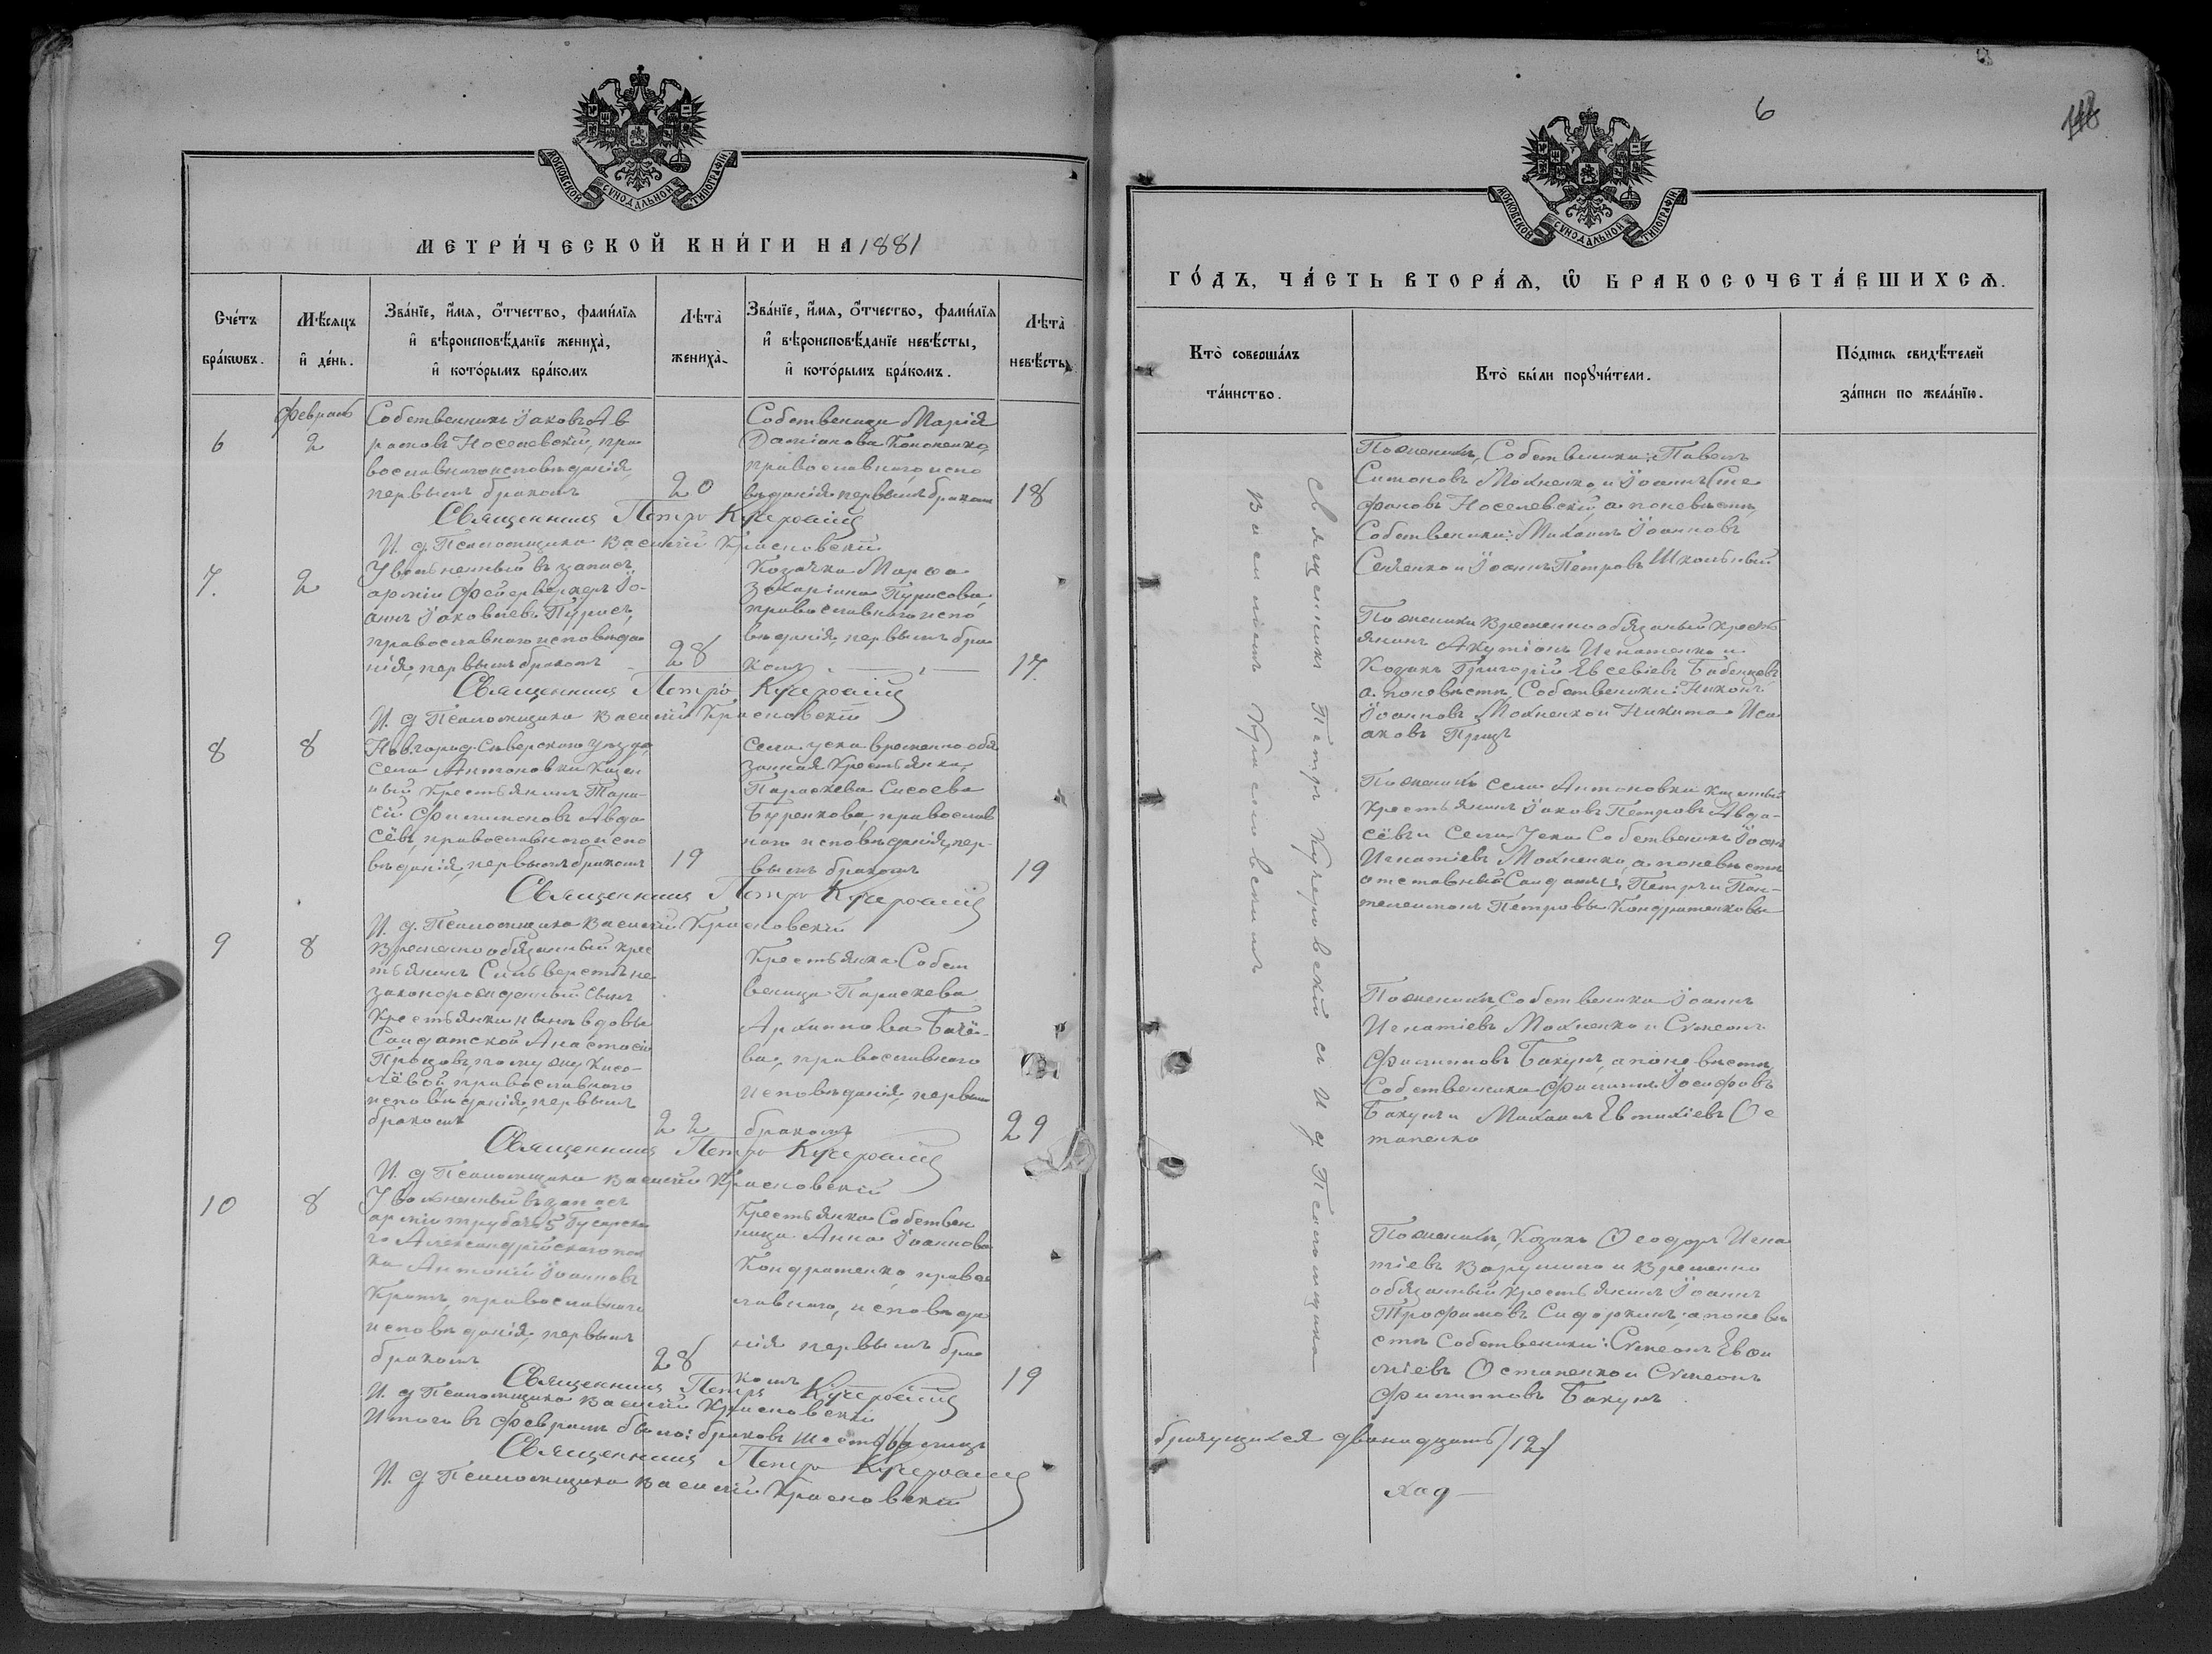 МОСКОВСКОЙ СѴНОДАЛЬНОЙ ТИПОГРАФІИ.
МЕТРИ́ЧЕСКОЙ КНИ́ГИ НА 1881
Счетъ бра́кѡвъ.
Мѣ́сяцъ и҆ де́нь.
Зва́нїе, и҆́мѧ, ѻ҆́тчество, фами́лїѧ
и҆ вѣроисповѣ́данїе жениха̀,
и҆ кото́рымъ бра́комъ
Лѣта̀ жениха̀.
Зва́нїе, и҆́мѧ, ѻ҆́тчество, фами́лїѧ
и҆ вѣроисповѣ́данїе невѣ́сты,
и҆ кото́рымъ бра́комъ.
Лѣта̀ невѣ́сты
февраль
6
2
Собственникъ Іаковъ Ав
рамовъ Носелевскій, пра
вославнаго исповѣданія,
первымъ бракомъ
20
Собственица Марія
Даміанова Кононенко,
православнаго испо
вѣданія, первымъ бракомъ
18
Священникъ Петръ Кучеровскій
И. д. Псаломщика Василій Красновскій
7.
2
Уволенный въ запасъ
арміи Фейерверкеръ Іо-
аннъ Іаковлевъ Пурисъ,
православнаго исповѣда
нія, первымъ бракомъ
28
Козачка Марѳа
Захаріина Пурисова
православнаго испо
вѣданія, первымъ бра
комъ
17.
Священникъ Петръ Кучеровскій
И. д. Псаломщика Василій Красновскій
8
8
Новгород-Сѣверскаго уѣзда,
села Антоновки Казен
ный Крестьянинъ Тара
сій Филимоновъ Авда
сёвъ, православнаго испо
вѣданія, первымъ бракомъ
19
Села Уска временно-обя
занная Крестьянка,
Параскева Сисоева
Буренкова, православ
наго исповѣданія, пер-
вымъ бракомъ
19
Священникъ Петръ Кучеровскій
И. д. Псаломщика Василій Красновскій
9
8
Временно обязанный крес
тьянинъ Сильверстъ не
законорожденный сынъ
Крестьянки нынѣ вдовы
Солдатской Анастасіи
по мужу Кисе-
лёвой, православнаго
исповѣданія, первымъ
бракомъ
22
Крестьянка Собст
веница Параскева
Архипова
православнаго
исповѣданія, первымъ
бракомъ
29
Священникъ Петръ Кучеровскій
И. д. Псаломщика Василій Красновскій
10
8
Уволенный въ запасъ
арміи трубачъ 5 Гусарска
го Александрійскаго пол
ка Антоній Іоанновъ
Кротъ, православнаго
исповѣданія, первымъ
бракомъ
28
Крестьянка Собствен
ница Анна Іоаннова
Кондратенко, правос
лавнаго, исповѣда
нія первымъ бра
комъ
19
Священникъ Петръ Кучеровскій
И. д. Псаломщика Василій Красновскій
Итого въ Февралѣ было: браковъ шесть /6/ а лицъ
Священникъ Петръ Кучеровскій
И. д. Псаломщика Василій Красновскій
6
118
МОСКОВСКОЙ СѴНОДАЛЬНОЙ ТИПОГРАФІИ.
ГО́ДЪ, ЧА́СТЬ ВТОРА́Ѧ, Ѡ҆ БРАКОСОЧЕТА́ВШИХСѦ.
Кто̀ соверша́лъ та́инство.
Кто̀ бы́ли порꙋчи́тели.
По́дпись свидѣ́телей за́писи по жела́нїю.
Священникъ Петръ Кучеровскій съ И д Псаломщика
Василіемъ Красновскимъ
По женихѣ, Собственики: Павелъ
Симоновъ Махненко, и Іоаннъ Сте
фановъ Носелевскій, а по невѣстѣ,
Собственики: Михаилъ Іоанновъ
Сененко и Іоаннъ Петровъ Школьный
По женихѣ Временно обязаный Кресть
янинъ Акутіонъ Игнатенко и
Козакъ Григорій Евсевіевъ Бабенковъ
а по невѣстѣ, Собственики: Никонъ
Іоанновъ Махненко и Никита Иса
аковъ Прищъ
По женихѣ села Антоновки казенный
Крестьянинъ Іаковъ Петровъ Авда-
сёвъ и села Уска Собственикъ Іоанъ
Игнатіевъ Махненко, а по невѣстѣ
отставный Солдатъ Петръ и Пан-
телеимонъ Петровы Кондратенковы
По женихѣ, Собственики Іоаннъ
Игнатіевъ Махненко и Сѵмеонъ
Филиповъ Бакунъ, а по невѣстѣ,
Собственики Филиппъ Іосифовъ
Бакунъ и Михаилъ Евтихіевъ Ос
тапенко
По женихѣ, Козакъ Ѳеодоръ Игна
тіевъ и Временно
обязанный Крестьянинъ Іоаннъ
Трофимовъ Сидоркинъ, а по невѣ
стѣ Собственики: Сѵмеонъ Евѳи
міевъ Остапенко и Сѵмеонъ
Филипповъ Бакунъ
брачущихся двенадцать /12/